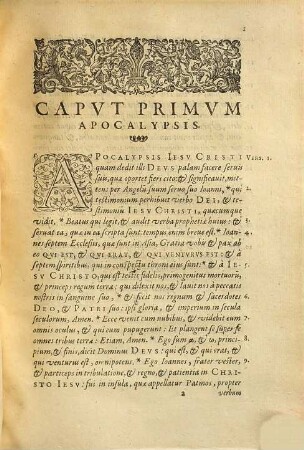 2
CAPVT PRIMVM
APOCALYPSIS.
APOCALYPSIS IESV CRISTI Vers. 1.
quam dedit illi DEVS palam facere seruis
suis, quæ oportet fieri citò, & significauit, mit-
tens per Angelū suum seruo suo Ioanni, * qui 2.
testimonium perhibuit verbo DEI, & te-
stimoniū IESV CHRISTI, quæcunque
vidit. * Beatus qui legit, & audit verba prophetiæ huius, & 3.
seruat ea, quæ in ea scripta sunt: tempus enim breue est. * Ioan- 4.
nes septem Ecclesijs, quæ sunt in Asia, Gratia vobis & pax ab
eo QVI EST, QVI ERAT, & QVI VENTVRVS EST: & à
septem spiritibus, qui in conspectu throni eius sunt: * & à IE- 5.
SV CHRISTO, qui est testis fidelis, primogenitus mortuorū,
& princeps regum terræ: qui dilexit nos, & lauit nos à peccatis
nostris in sanguine suo, * & fecit nos regnum & sacerdotes 6.
DEO, & PATRI suo: ipsi gloria, & imperium in secula
seculorum, Amen. * Ecce venit cum nubibus, & videbit eum 7.
omnis oculus, & qui eum pupugerunt: Et plangent se super eū
omnes tribus terræ: Etiam, Amen. * Ego sum α, & ω, princi- 8.
pium & finis, dicit Dominus DEVS: qui est, & qui erat, &
qui venturus est, omnipotens. * Ego Ioannes, frater vester, 9.
& particeps in tribulatione, & regno, & patientia in CHRI-
STO IESV: fui in insula, quæ appellatur Patmos, propter
2 verbum